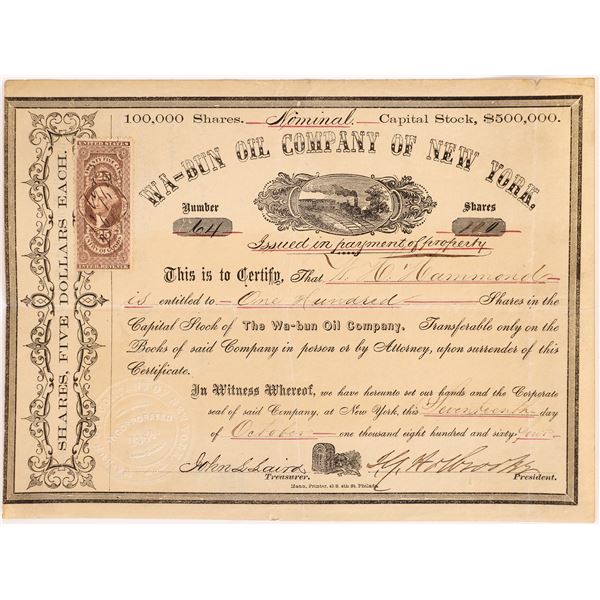 100,000 Shares. Nominal Capital Stock, $500,000.
WA-BUN OIL COMPANY OF NEW YORK.
Number Shares
64 100
Issued in payment of property
This is to Certify, That H. Hammond
is entitled to One Hundred Shares in the
Capital Stock of The Wa-bun Oil Company. Transferable only on the
Books of said Company in person or by Attorney, upon surrender of this
Certificate.
In Witness Whereof, we have hereunto set our hands and the Corporate
seal of said Company, at New York, this Seventeenth day
of October one thousand eight hundred and sixty Four
John L. Laird
Treasurer. President.
Mann, Printer, 43 S. 4th St. Philada.
SHARES, FIVE DOLLARS EACH.
UNITED STATES
25 25
INTER. REVENUE
INCORPORATED